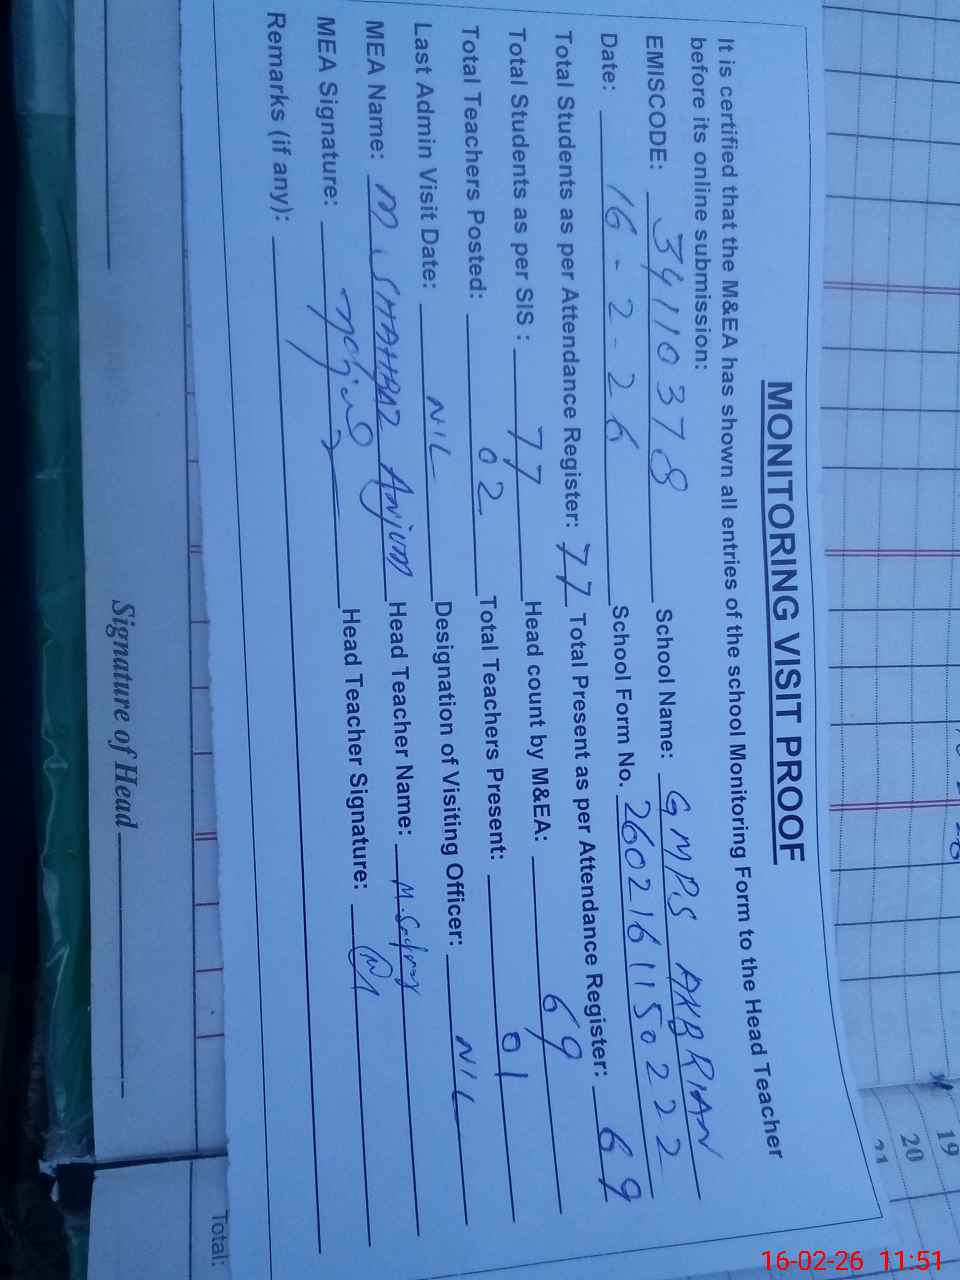 MONITORING VISIT PROOF
It is certified that the M&EA has shown all entries of the school Monitoring Form to the Head Teacher
before its online submission:
EMISCODE: 34110378 School Name: GMPS AKBRIAN
Date: 16-2-26 School Form No. 2602161150222
Total Students as per Attendance Register: 77 Total Present as per Attendance Register: 69
Total Students as per SIS : 77 Head count by M&EA: 69
Total Teachers Posted: 02 Total Teachers Present: 01
Last Admin Visit Date: NIL Designation of Visiting Officer: NIL
MEA Name: M SHAHBAZ Anjum Head Teacher Name: M.
MEA Signature: Head Teacher Signature:
Remarks (if any):
Signature of Head
Total:
19
20
21
16-02-26 11:51